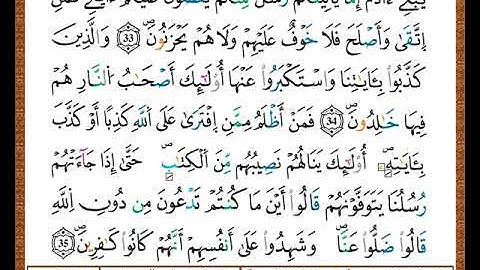 يَٰبَنِےٓ ءَادَمَ إِمَّا يَأْتِيَنَّكُمْ رُسُلٞ مِّنكُمْ يَقُصُّونَ عَلَيْكُمُۥٓ ءَايَٰتِے فَمَنِ
اِتَّق۪يٰ وَأَصْلَحَ فَلَا خَوْفٌ عَلَيْهِمْ وَلَا هُمْ يَحْزَنُونَۖ 33 وَالذِينَ
كَذَّبُواْ بِـَٔايَٰتِنَا وَاسْتَكْبَرُواْ عَنْهَا أُوْلَٰٓئِكَ أَصْحَٰبُ النّ۪ارِ هُمْ
فِيهَا خَٰلِدُونَۖ 34 فَمَنْ أَظْلَمُ مِمَّنِ اِفْتَر۪يٰ عَلَى اَللَّهِ كَذِباً أَوْ كَذَّبَ
بِـَٔايَٰتِهِۦٓۖ أُوْلَٰٓئِكَ يَنَالُهُمْ نَصِيبُهُم مِّنَ اَلْكِتَٰبِۖ حَتَّىٰٓ إِذَا جَآءَتْهُمْ
رُسُلُنَا يَتَوَفَّوْنَهُمْ قَالُوٓاْ أَيْنَ مَا كُنتُمْ تَدْعُونَ مِن دُونِ اِللَّهِ
قَالُواْ ضَلُّواْ عَنَّاۖ وَشَهِدُواْ عَلَىٰٓ أَنفُسِهِمُۥٓ أَنَّهُمْ كَانُواْ كٰ۪فِرِينَۖ 35